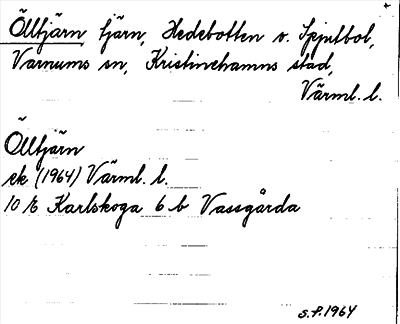 Ölltjärn tjärn, Hedebotten v. Spjutbol,
Varnums sn, Kristinehamns stad,
Värml. l.
Ölltjärn
ek (1964) Värml. l.
10 E Karlskoga 6 b Vassgårda
S.F. 1964